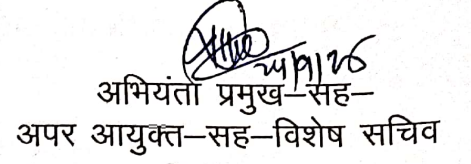 24/9/26
अभियंता प्रमुख–सह–
अपर आयुक्त–सह–विशेष सचिव